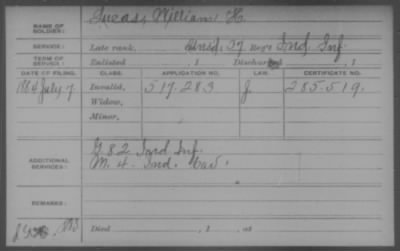 NAME OF SOLDIER: Lucas, William H.
SERVICE: Late rank, Unid. 27 Reg't Ind. Inf.
TERM OF SERVICE: Enlisted , 1 Discharged , 1
DATE OF FILING. CLASS. APPLICATION NO. LAW. CERTIFICATE NO.
1884 July 7 Invalid, 517.283 J 285.519.
Widow,
Minor,
ADDITIONAL SERVICES: G. 82 Ind Inf.
M. 4 Ind. Cav.
REMARKS:
Died , 1 , at